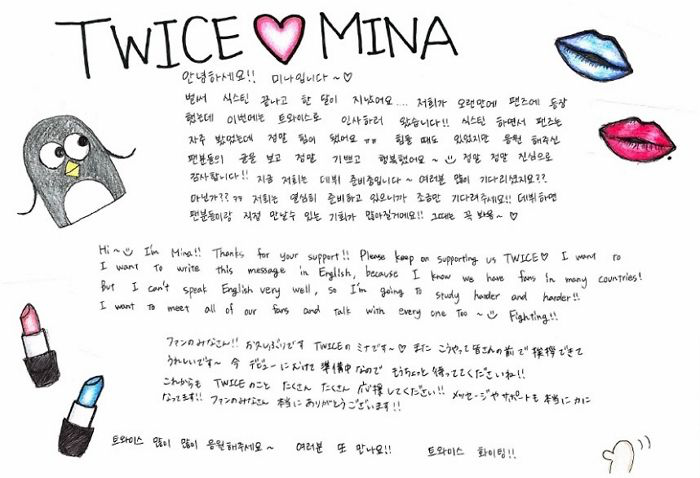 TWICE♡MINA
안녕하세요!! 미나입니다~♡
벌써 식스틴 끝나고 한 달이 지났어요.... 저희가 오랜만에 팬즈에 등장
했는데 이번에는 트와이스로 인사하러 왔습니다!! 식스틴 하면서 팬즈는
자주 봤었는데 정말 힘이 됐어요 ㅠㅠ 힘들 때도 있었지만 응원 해주신
팬분들의 글을 보고 정말 기쁘고 행복했어요~ 정말 정말 진심으로
감사합니다!! 지금 저희는 데뷔 준비중입니다~ 여러분 많이 기다리셨지요??
아닌가?? ㅋㅋ 저희는 열심히 준비하고 있으니까 조금만 기다려주세요!! 데뷔하면
팬분들이랑 직접 만날수 있는 기회가 많아질거에요!! 그때는 꼭 봐용~♡
Hi~ I'm Mina!! Thanks for your support!! Please keep on supporting us TWICE♡ I want to
I want to write this message in English, because I know we have fans in many countries!
But I can't speak English very well, so I'm going to study harder and harder!!
I want to meet all of our fans and talk with every one too~ Fighting!!
ファンのみなさん!! お久しぶりです TWICEのミナです~♡ また こうやって皆さんの前で挨拶できて
うれしいです~ 今 デビューにむけて準備中なので もうちょっと待っててくださいね!!
これからも TWICEのこと たくさん たくさん 応援してください!! メッセージやサポートも本当に力に
なってます!! ファンのみなさん 本当にありがとうございます!!
트와이스 많이 많이 응원해주세요~ 여러분 또 만나요!! 트와이스 화이팅!!